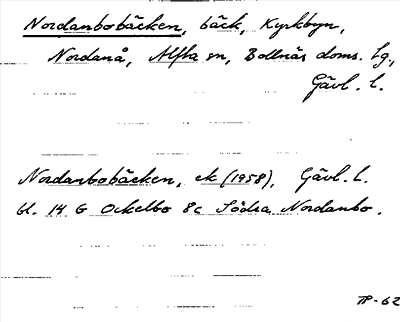 Nordanbobäcken, bäck, Kyrkbyn,
Nordanå, Alfta sn, Bollnäs doms. lg.,
Gävl. l.
Nordanbobäcken, ek (1958), Gävl. l.
bl. 14 G Ockelbo 8c Södra Nordanbo.
TP-62